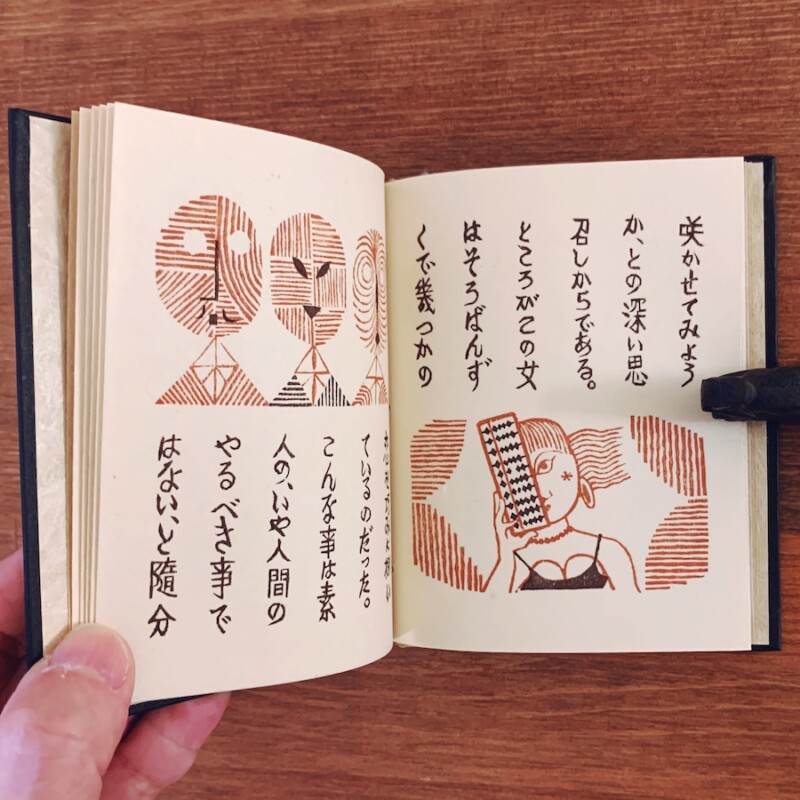 咲かせてみよう
か、との深い思
召しからである。
ところがこの女
はそろばんず
くで幾つかの
ているのだった。
こんな事は素
人の、いや人間の
やるべき事で
はない、と隨分